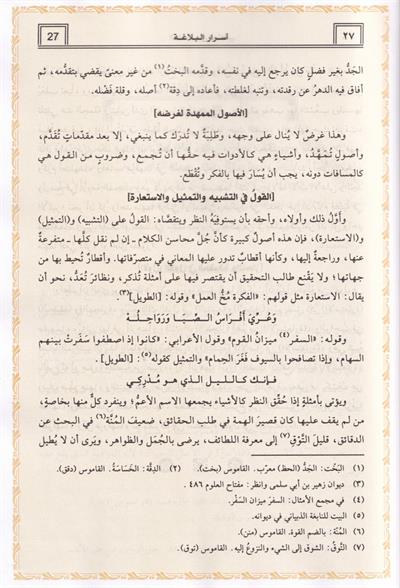 ٢٧ أسرار البلاغة 27
الجَدُّ بغير فضلٍ كان يرجع إليه في نفسه، وقدَّمه البختُ(١) من غير معنىً يقضي بتقدُّمه، ثم
أفاق فيه الدهرُ عن رقدته، وتنبه لغلطته، فأعاده إلى دِقة(٢) أصله، وقلة فَضْله.
[الأصول الممهدة لغرضه]
وهذا غرضٌ لا يُنال على وجهه، وطَلِبَةٌ لا تُدرَك كما ينبغي، إلا بعد مقدِّماتٍ تُقدَّم،
وأصولٍ تُمهَّدُ، وأشياءٍ هي كالأدوات فيه حقُّها أن تُجمع، وضروبٍ من القول هي
كالمسافات دونه، يجب أن يُسَارَ فيها بالفكر وتُقْطَع.
[القولُ في التشبيه والتمثيل والاستعارة]
وأوَّلُ ذلك وأولاه، وأحقه بأن يستوفيَهُ النظر ويتقصَّاه: القولُ على (التشبيه) و(التمثيل)
و(الاستعارة)، فإن هذه أصولٌ كبيرة كأنَّ جُلَّ محاسن الكلام ـ إن لم نقل كلَّها ـ متفرعةٌ
عنها، وراجعةٌ إليها، وكأنها أقطابٌ تدور عليها المعاني في متصرّفاتها، وأقطارٌ تُحيط بها من
جهاتها؛ ولا يَقْنع طالب التحقيق أن يقتصر فيها على أمثلة تُذكر، ونظائرَ تُعَدُّ، نحو أن
يقال: الاستعارة مثل قولهم: «الفكرة مُخُّ العمل» وقوله: [الطويل](٣).
وَعُـرِّيَ أَفْـرَاسُ الـصِّـبَـا وَرَوَاحِـلُـهْ
وقوله: «السفر(٤) ميزانُ القوم» وقول الأعرابي: «كانوا إذا اصطفوا سَفَرتْ بينهم
السهام، وإذا تصافحوا بالسيوف فَغَرَ الحِمام» والتمثيل كقوله(٥): [الطويل].
فـإنـك كـالـلـيـل الـذي هـو مُـدْرِكـي
ويؤتى بأمثلةٍ إذا حُقِّق النظر كالأشياء يجمعها الاسم الأعمُّ؛ وينفرد كلٌّ منها بخاصةٍ،
من لم يقف عليها كان قصيرَ الهمة في طلب الحقائق، ضعيفَ المُنَّة(٦) في البحث عن
الدقائق، قليلَ التَّوْق(٧) إلى معرفة اللطائف، يرضى بالجُمَل والظواهر، ويَرى أن لا يُطيل
(١) البَخْت: الجَدُّ (الحظ) معرّب. القاموس (بخت). (٢) الدِقَّة: الخَسَاسَةُ. القاموس (دقق).
(٣) ديوان زهير بن أبي سلمى وانظر: مفتاح العلوم ٤٨٦.
(٤) في مجمع الأمثال: السفرَ ميزان السَّفْر.
(٥) البيت للنابغة الذبياني في ديوانه.
(٦) المُنَّة: بالضم القوة. القاموس (منن).
(٧) التُّوقُ: الشوق إلى الشيء والنزوعُ إليه. القاموس (توق).